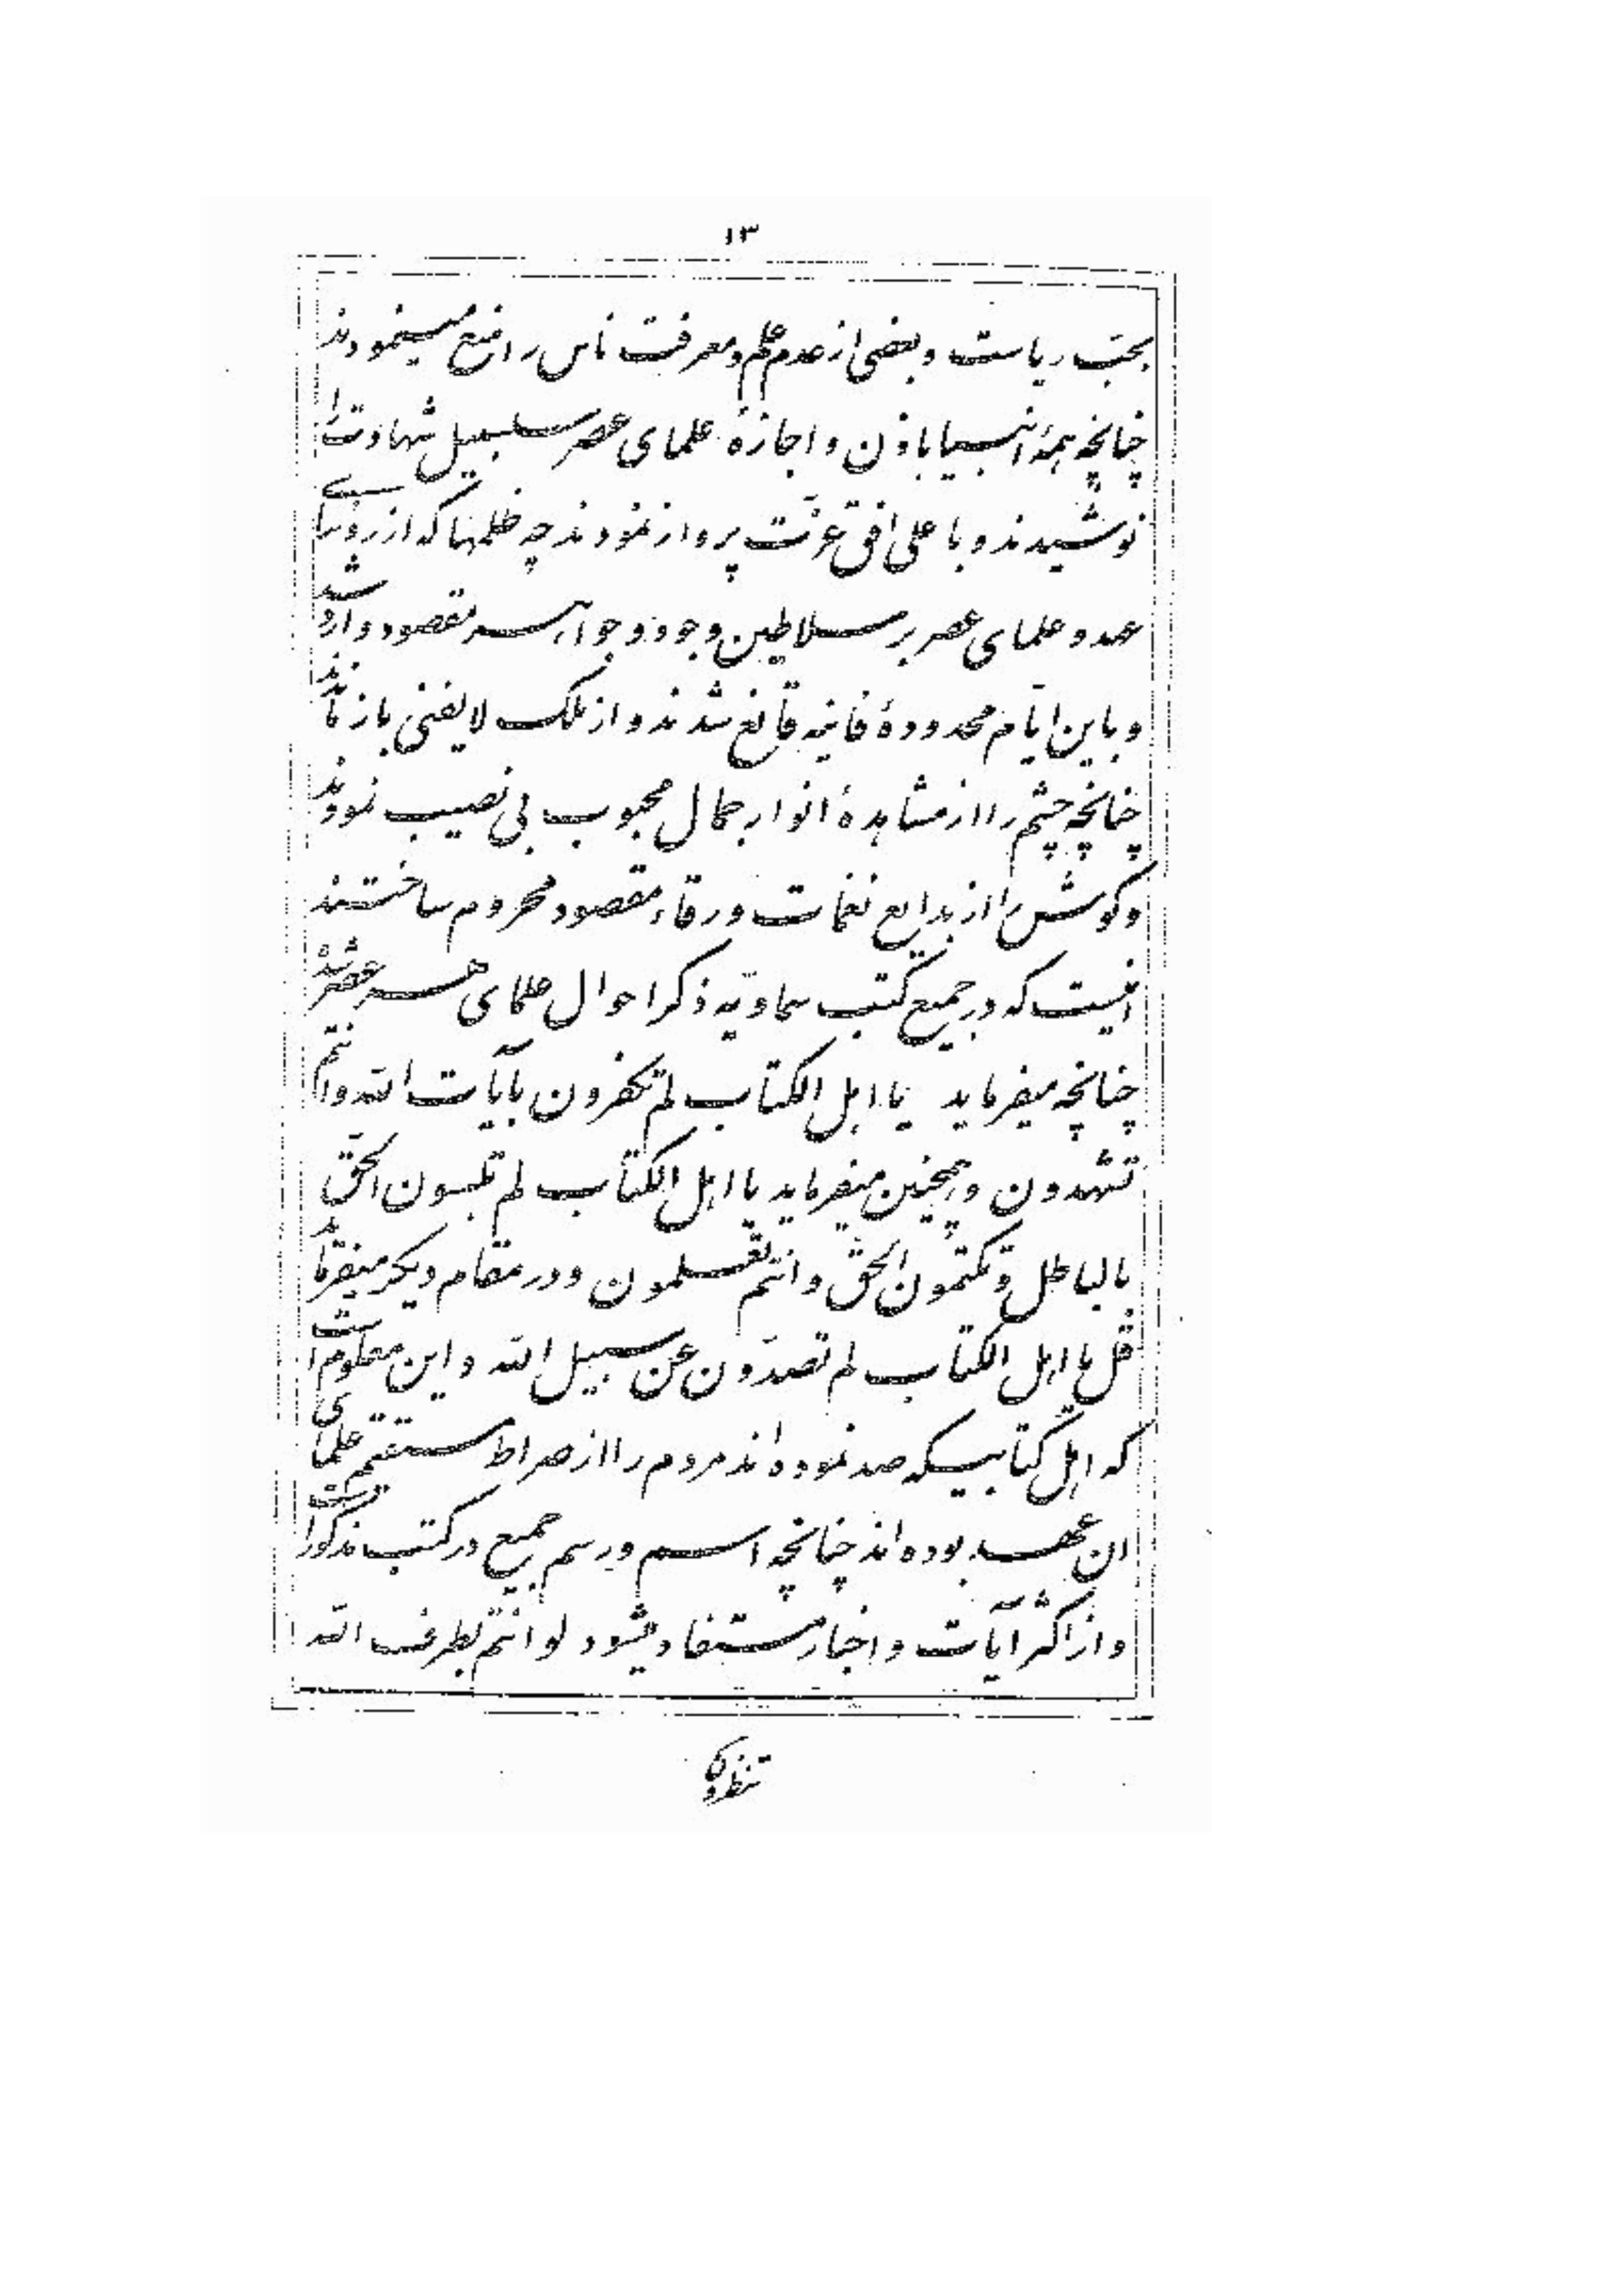 ١٣
بحبّ رياست و بعضى از عدم علم و معرفت ناس را منع مينمودند
چنانچه همهٔ انبيا باذن و اجازهٔ علماى عصر سلسبيل شهادت را
نوشيدند و باعلى افق عزّت پرواز نمودند چه ظلمها كه از رؤساى
عهد و علماى عصر بر سلاطين وجود و جواهر مقصود وارد شد
و باين ايّام محدودهٔ فانيه قانع شدند و از ملك لا يفنى باز ماندند
چنانچه چشم را از مشاهدهٔ انوار جمال محبوب بى نصيب نمودند
و كوش را از بدايع نغمات ورقاء مقصود محروم ساختند
اينست كه در جميع كتب سماويّه ذكر احوال علماى هر عصر شده
چنانچه ميفرمايد يا اهل الكتاب لم تكفرون بآيات الله و انتم
تشهدون و همچنين ميفرمايد يا اهل الكتاب لم تلبسون الحقّ
بالباطل و تكتمون الحقّ و انتم تعلمون و در مقام ديكر ميفرمايد
قل يا اهل الكتاب لم تصدّون عن سبيل الله و اين معلوم است
كه اهل كتابيكه صد نموده‌اند مردم را از صراط مستقيم علماى
ان عهد بوده‌اند چنانچه اسم و رسم جميع در كتب مذكور است
و از اكثر آيات و اخبار مستفاد ميشود لو انتم بطرف الله
تنظرون